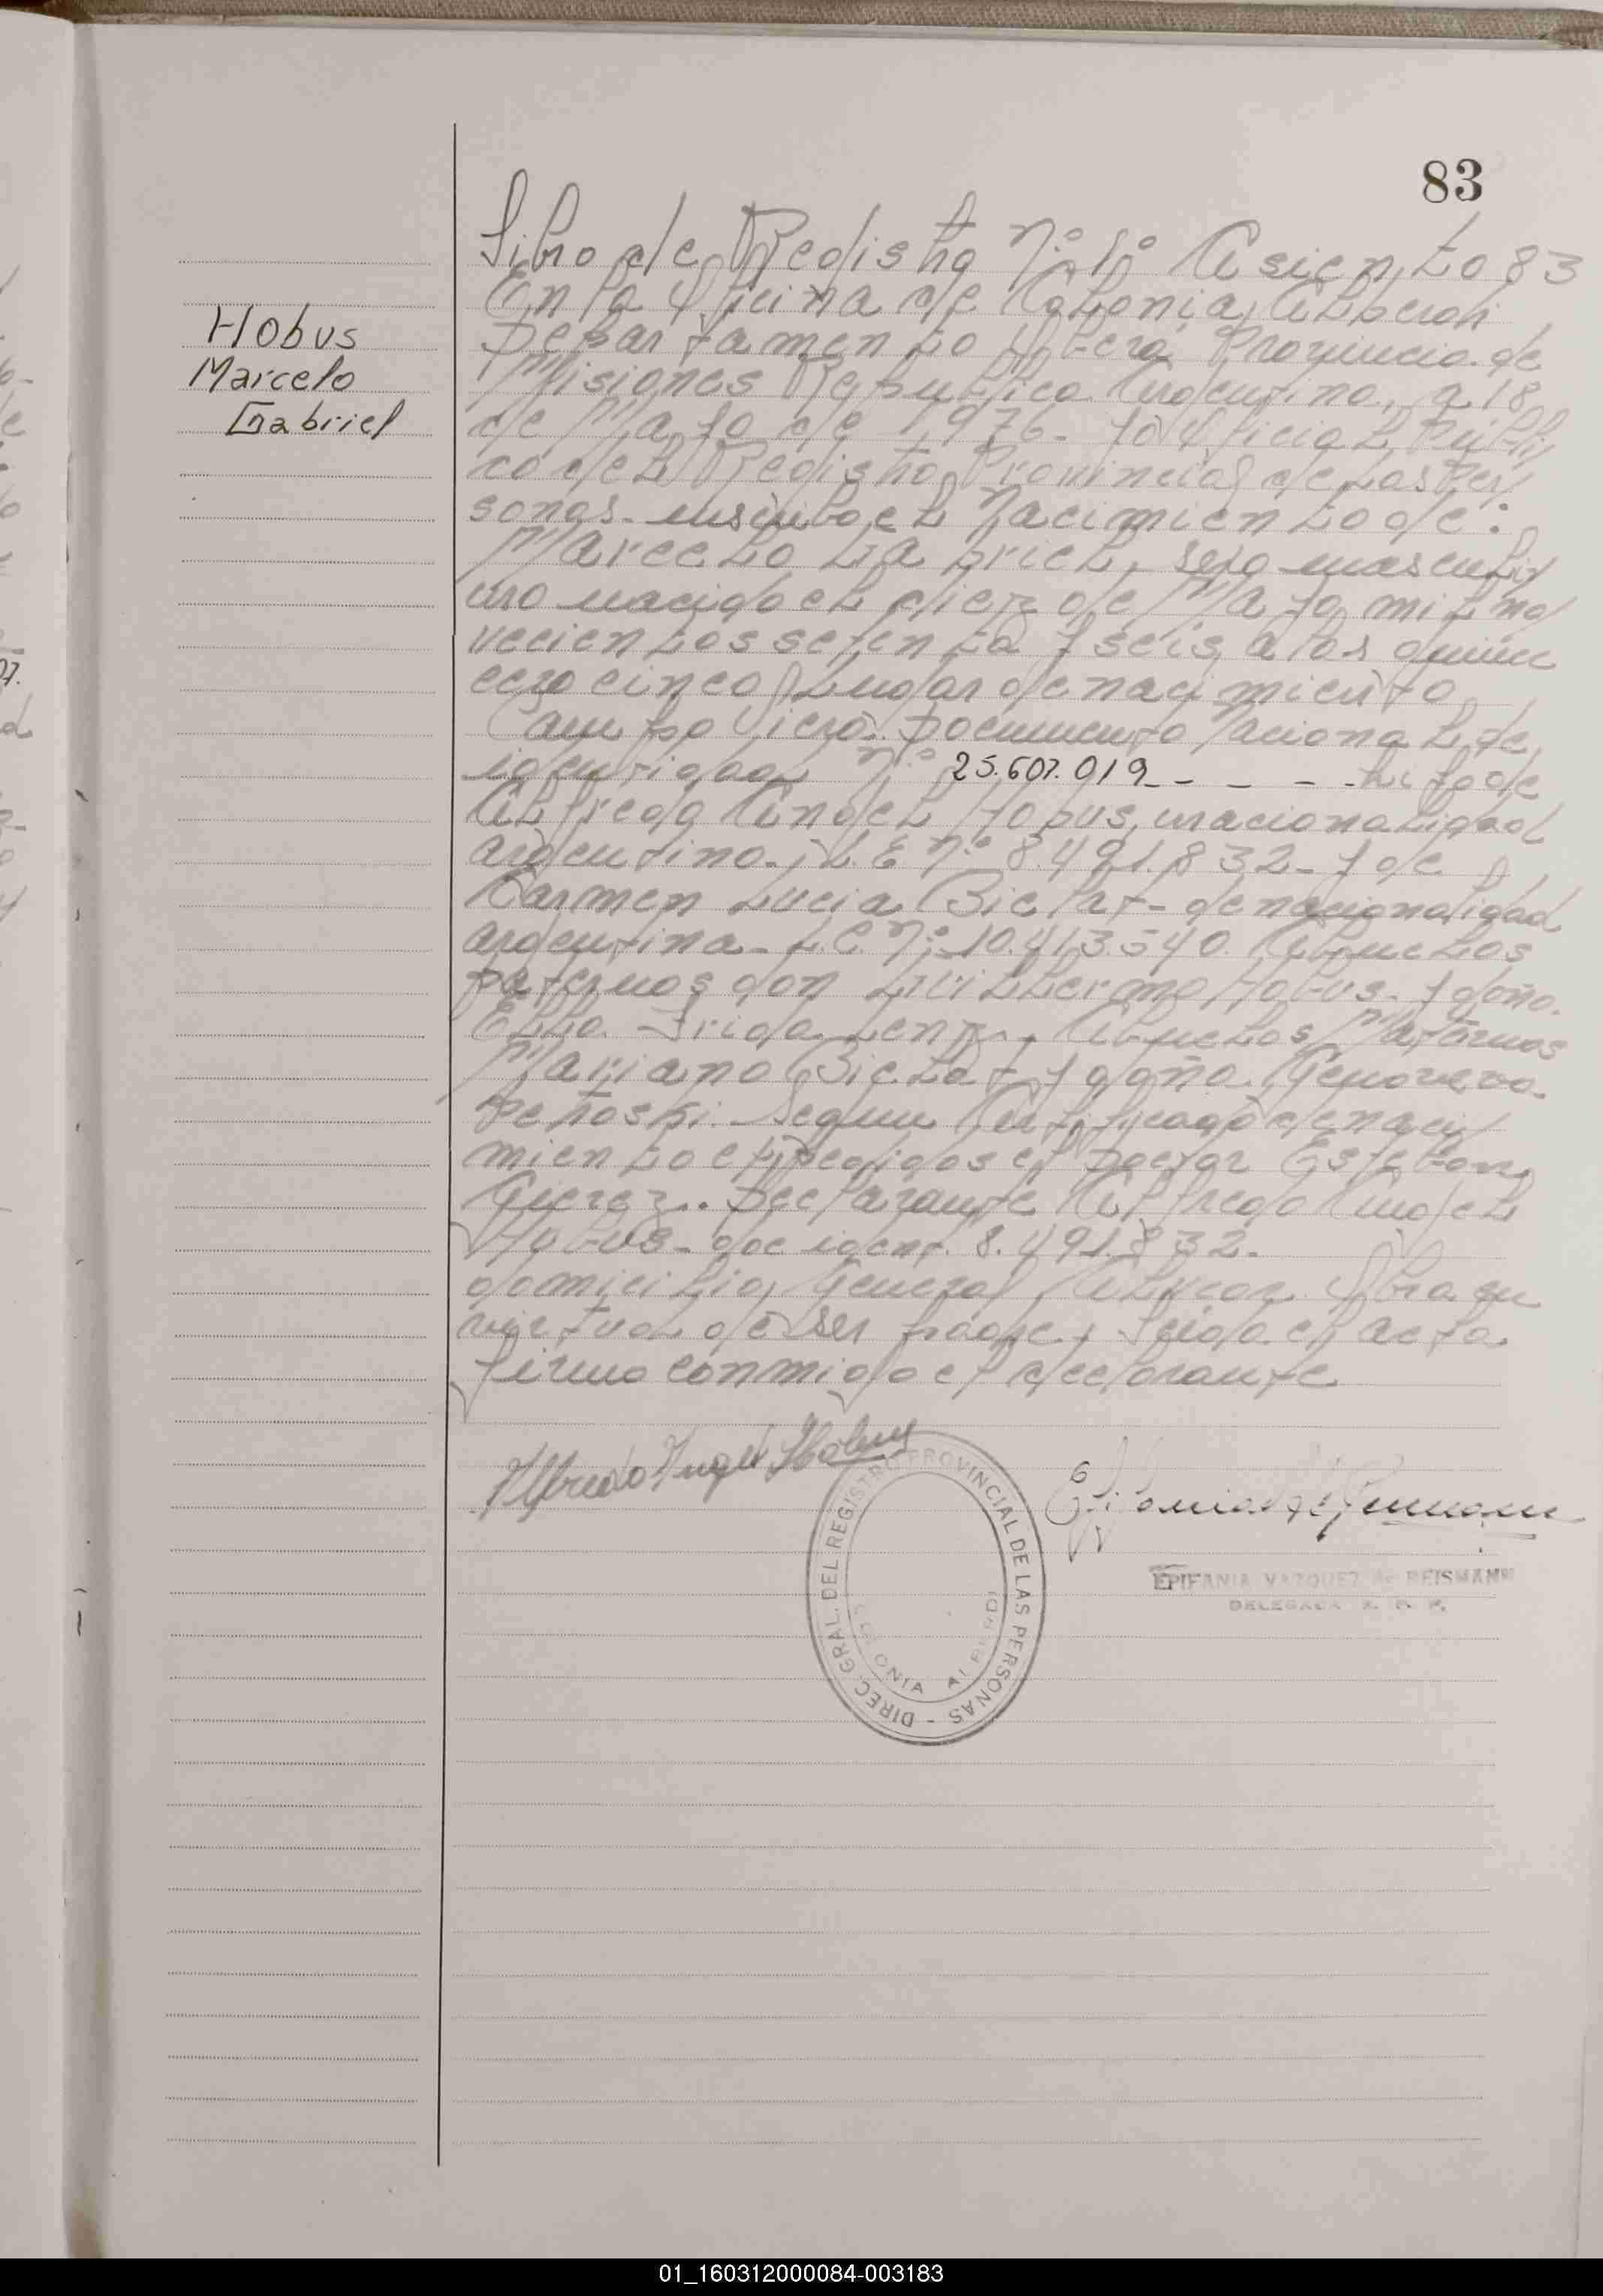 83
Libro de Registro N.º 1º Asiento 83
En la Oficina de Colonia Alberdi
Departamento Oberá Provincia de
Misiones Republica Argentina, a 18
de Mayo de 1976. Yo Oficial Públi
co del Registro Provincial de las Per
sonas. inscribo el Nacimiento de:
Marcelo Gabriel, sexo masculi
no nacido el diez de Mayo, mil no
vecientos setenta y seis, a las quin
ce y cinco, Lugar de nacimiento
Campo Viera. Documento Nacional de
identidad N.º 25.607.019 - - - hijo de
Alfredo Angel Hobus, nacionalidad
argentino. L. E Nº 8.491.832 - y de
Carmen Lucia - de nacionalidad
argentina - L.C. Nº 10.413.540. Abuelos
paternos don Guillermo Hobus. y doña.
Ella Frida Lenz, Abuelos Maternos
Mariano y doña Genoveva
Segun Certificado de naci
miento expedidos el Doctor Esteban
Declarante Alfredo Angel
Hobus - doc ident. 8.491.832.
domicilio, General Alvear. Obra en
virtud de ser padre, leida el acta
firma conmigo el declarante
Hobus
Marcelo
Gabriel
Alfredo Angel Hobus
DIREC. GRAL. DEL REGISTRO PROVINCIAL DE LAS PERSONAS -
COLONIA ALBERDI
EPIFANIA VAZQUEZ de REISMANN
DELEGADA R. P. P.
01_160312000084-003183